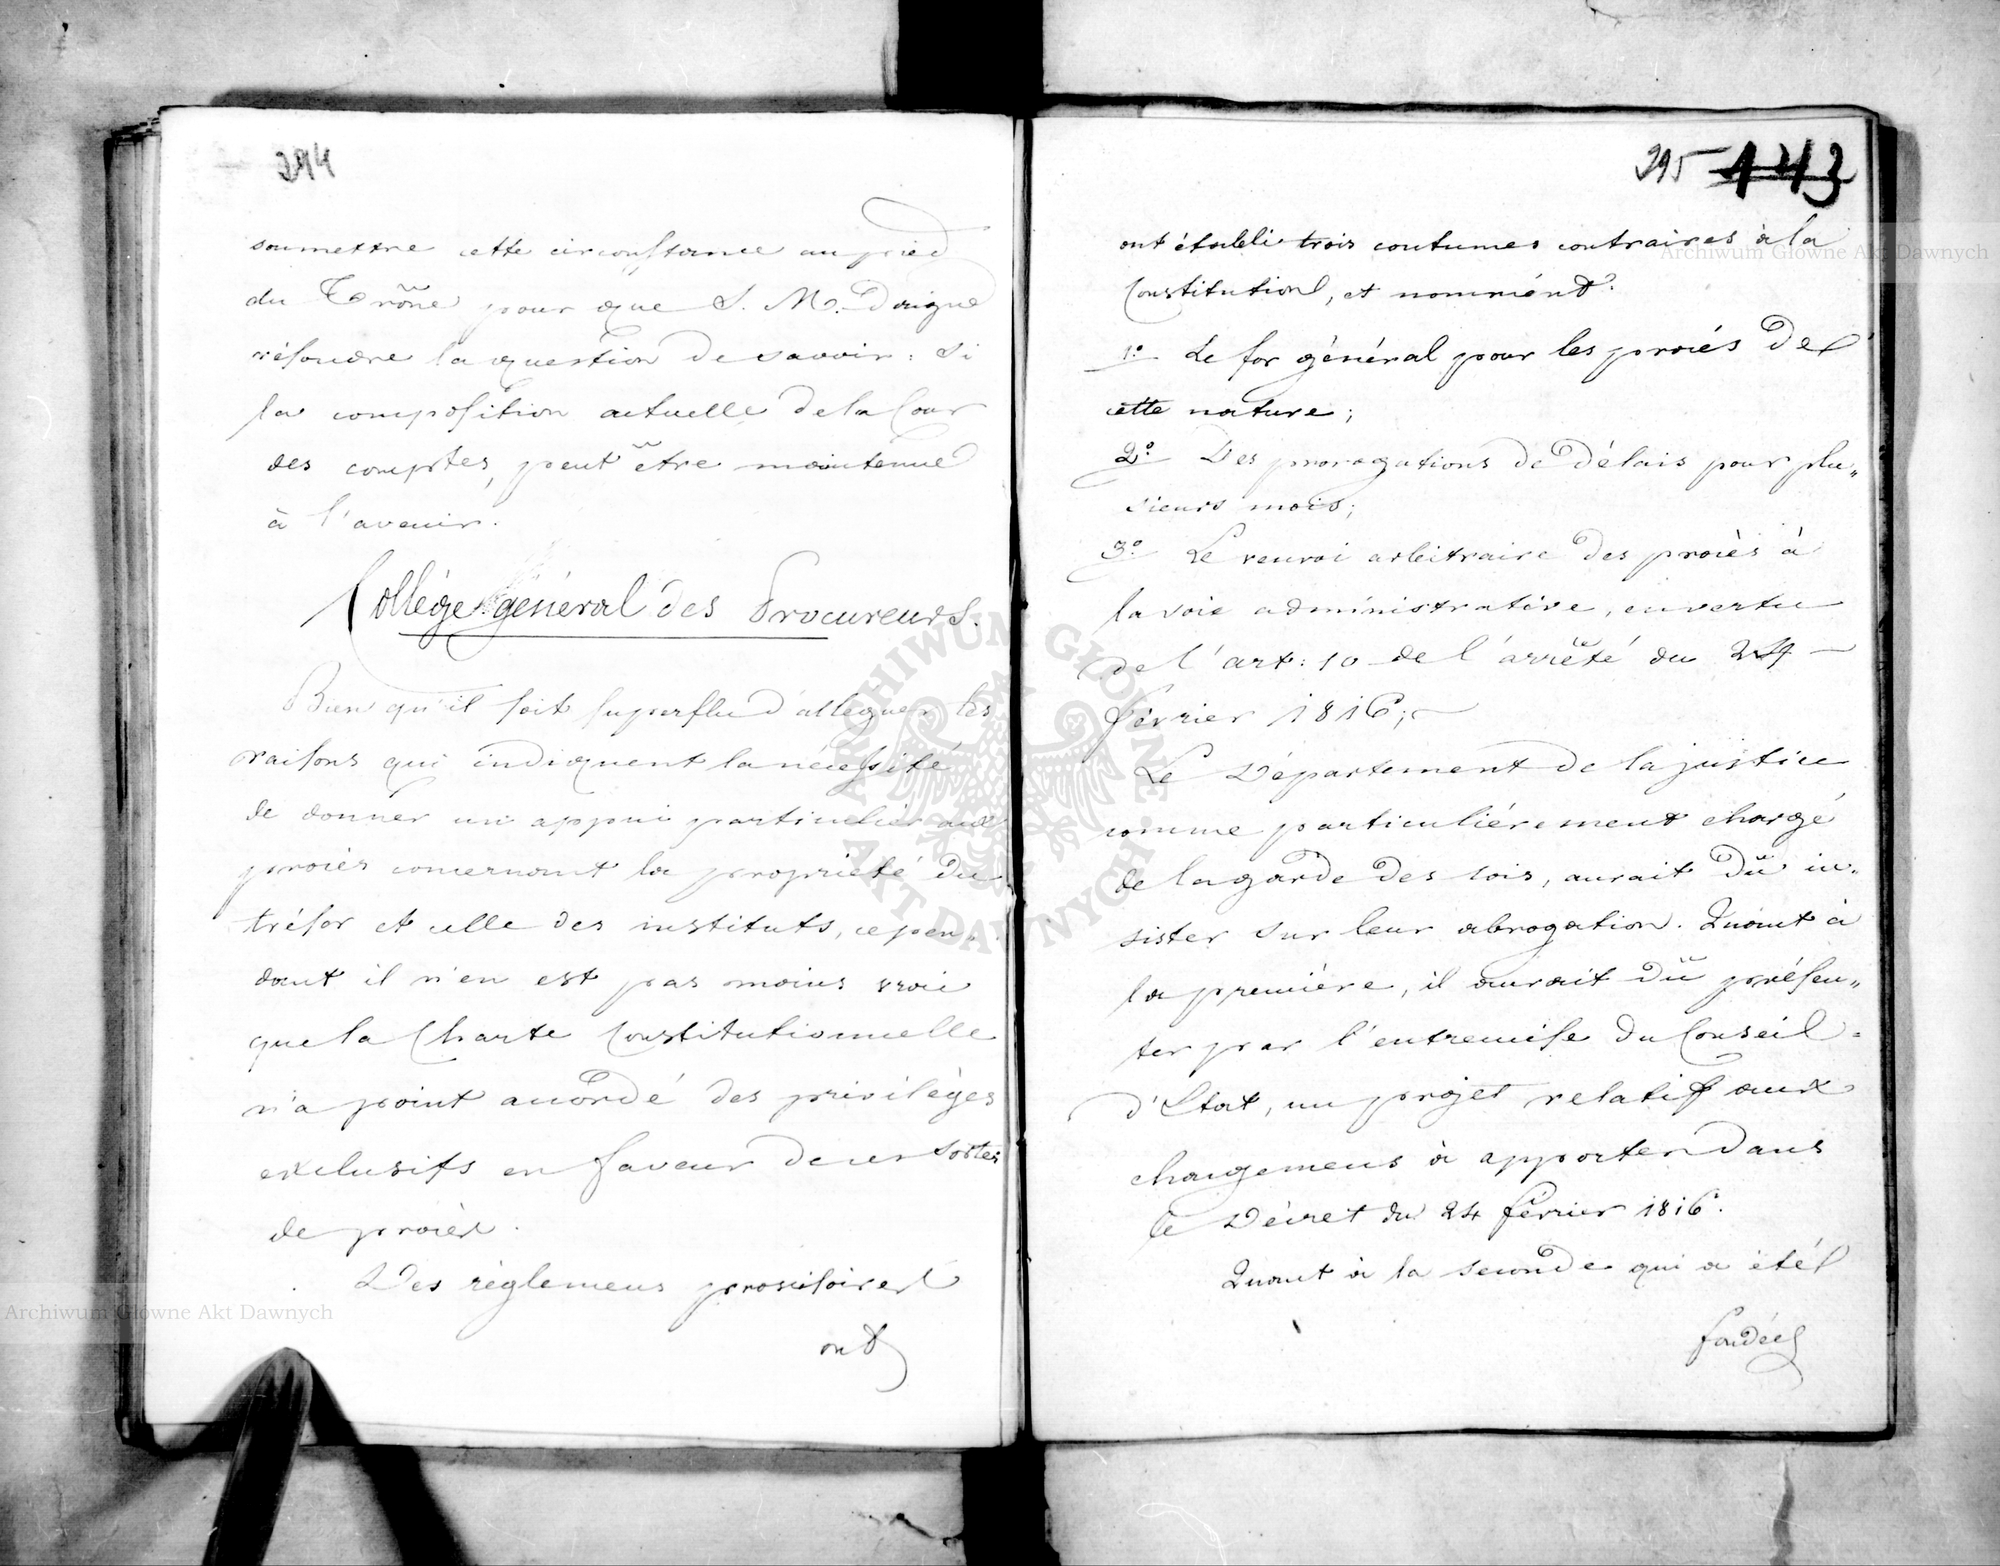 294
soumettre cette circonstance au pied
du Trône pour que S. M. Daigne
résoudre la question de savoir: si
la composition actuelle de la Cour
des comptes, peut être maintenue
à l'avenir.
Collège général des Procureurs.
Bien qu'il soit superflu d'alleguer les
raisons qui indiquent la nécessité
de donner un appui particulier aux
procès concernant la propriété du
trésor et celle des instituts, cepen„
dant il n'en est pas moins vrai
que la Charte Constitutionnelle
n'a point accordé des privilèges
exclusifs en faveur de ces sortes
de procès.
Des réglemens provisoires
ont
295 143
ont établi trois coutumes contraires à la
Constitution, et nommént:
1º Le for général pour les procés de
cette nature;
2º Des prorogations de délais pour plu„
sieurs mois;
3º Le renvoi arbitraire des procès à
la voie administrative, en vertu
de l'art: 10 de l'arrêté du 24
février 1816;
Le Département de la justice
comme particuliérement chargé
de la garde des lois, aurait dû in„
sister sur leur abrogation. Quant à
la première, il aurait dû présen„
ter par l'entremise du Conseil
d'Etat, un projet relatif aux
changemens à apporter dans
le Décret du 24 février 1816.
Quant à la seconde qui a été
fondée
Archiwum Główne Akt Dawnych
Archiwum Główne Akt Dawnych
ARCHIWUM GŁÓWNE AKT DAWNYCH